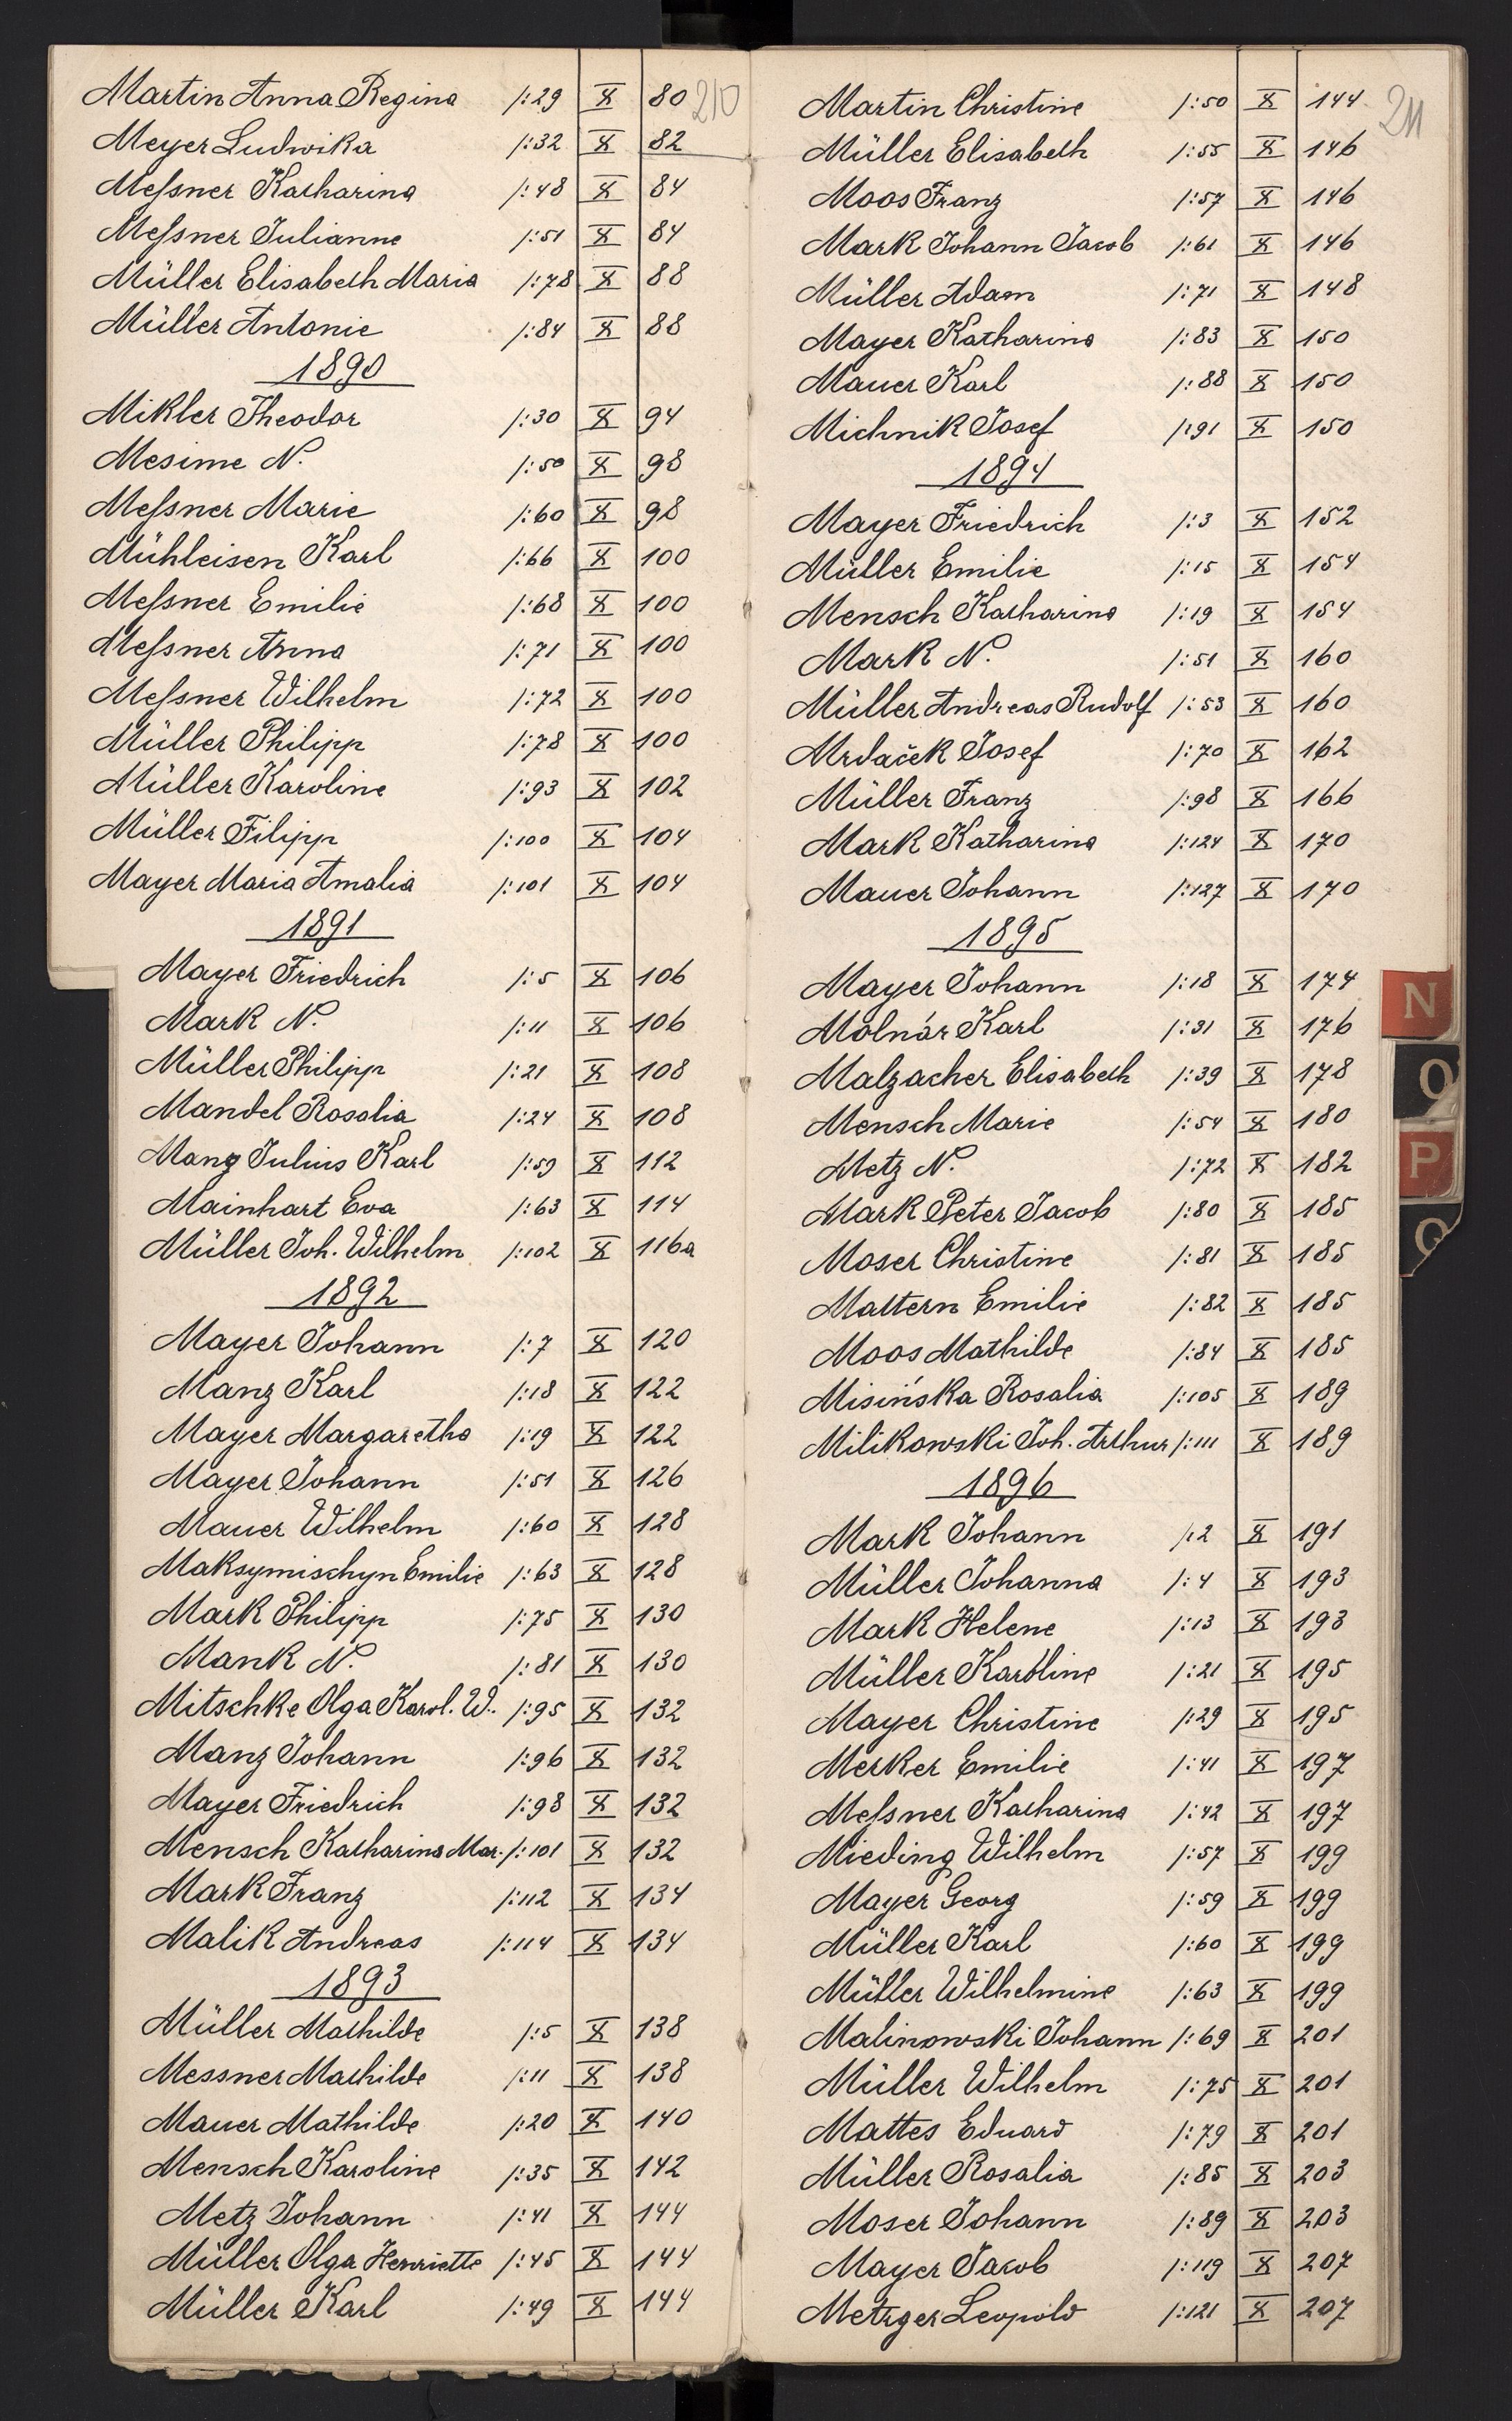 210
Martin Anna Regina /:29 X 80
Meyer Ludwika /:32 X 82
Meſsner Katharina /:48 X 84
Meſsner Julianne /:51 X 84
Müller Elisabeth Maria /:78 X 88
Müller Antonie /:84 X 88
1890
Mikler Theodor /:30 X 94
Mesime N. /:50 X 98
Meſsner Marie /:60 X 98
Mühleisen Karl /:66 X 100
Meſsner Emilie /:68 X 100
Meſsner Anna /:71 X 100
Meſsner Wilhelm /:72 X 100
Müller Philipp /:78 X 100
Müller Karoline /:93 X 102
Müller Filipp /:100 X 104
Mayer Maria Amalia /:101 X 104
1891
Mayer Friedrich /:5 X 106
Mark N. /:11 X 106
Müller Philipp /:21 X 108
Mandel Rosalia /:24 X 108
Manz Julius Karl /:59 X 112
Mainhart Eva /:63 X 114
Müller Joh. Wilhelm /:102 X 116a
1892
Mayer Johann /:7 X 120
Manz Karl /:18 X 122
Mayer Margaretha /:19 X 122
Mayer Johann /:51 X 126
Mauer Wilhelm /:60 X 128
Maksymischyn Emilie /:63 X 128
Mark Philipp /:75 X 130
Mank N. /:81 X 130
Mitschke Olga Karol. W. /:95 X 132
Manz Johann /:96 X 132
Mayer Friedrich /:98 X 132
Mensch Katharina Mar. /:101 X 132
Mark Franz /:112 X 134
Malik Andreas /:114 X 134
1893
Müller Mathilde /:5 X 138
Messner Mathilde /:11 X 138
Mauer Mathilde /:20 X 140
Mensch Karoline /:35 X 142
Metz Johann /:41 X 144
Müller Olga Henriette /:45 X 144
Müller Karl /:49 X 144
211
Martin Christine /:50 X 144
Müller Elisabeth /:55 X 146
Moos Franz /:57 X 146
Mark Johann Jacob /:61 X 146
Müller Adam /:71 X 148
Mayer Katharina /:83 X 150
Mauer Karl /:88 X 150
Michnik Josef /:91 X 150
1894
Mayer Friedrich /:3 X 152
Müller Emilie /:15 X 154
Mensch Katharina /:19 X 154
Mark N. /:51 X 160
Müller Andreas Rudolf /:53 X 160
Mrdaček Josef /:70 X 162
Müller Franz /:98 X 166
Mark Katharina /:124 X 170
Mauer Johann /:127 X 170
1895
Mayer Johann /:18 X 174
Molnár Karl /:31 X 176
Malzacher Elisabeth /:39 X 178
Mensch Marie /:54 X 180
Metz N. /:72 X 182
Mark Peter Jacob /:80 X 185
Moser Christine /:81 X 185
Mattern Emilie /:82 X 185
Moos Mathilde /:84 X 185
Misińska Rosalia /:105 X 189
Milikowski Joh. Arthur /:111 X 189
1896
Mark Johann /:2 X 191
Müller Johanna /:4 X 193
Mark Helene /:13 X 193
Müller Karoline /:21 X 195
Mayer Christine /:29 X 195
Merker Emilie /:41 X 197
Meſsner Katharina /:42 X 197
Mieding Wilhelm /:57 X 199
Mayer Georg /:59 X 199
Müller Karl /:60 X 199
Müller Wilhelmine /:63 X 199
Malinowski Johann /:69 X 201
Müller Wilhelm /:75 X 201
Mattes Eduard /:79 X 201
Müller Rosalia /:85 X 203
Moser Johann /:89 X 203
Mayer Jacob /:119 X 207
Metzger Leopold /:121 X 207
N
O
P
Q